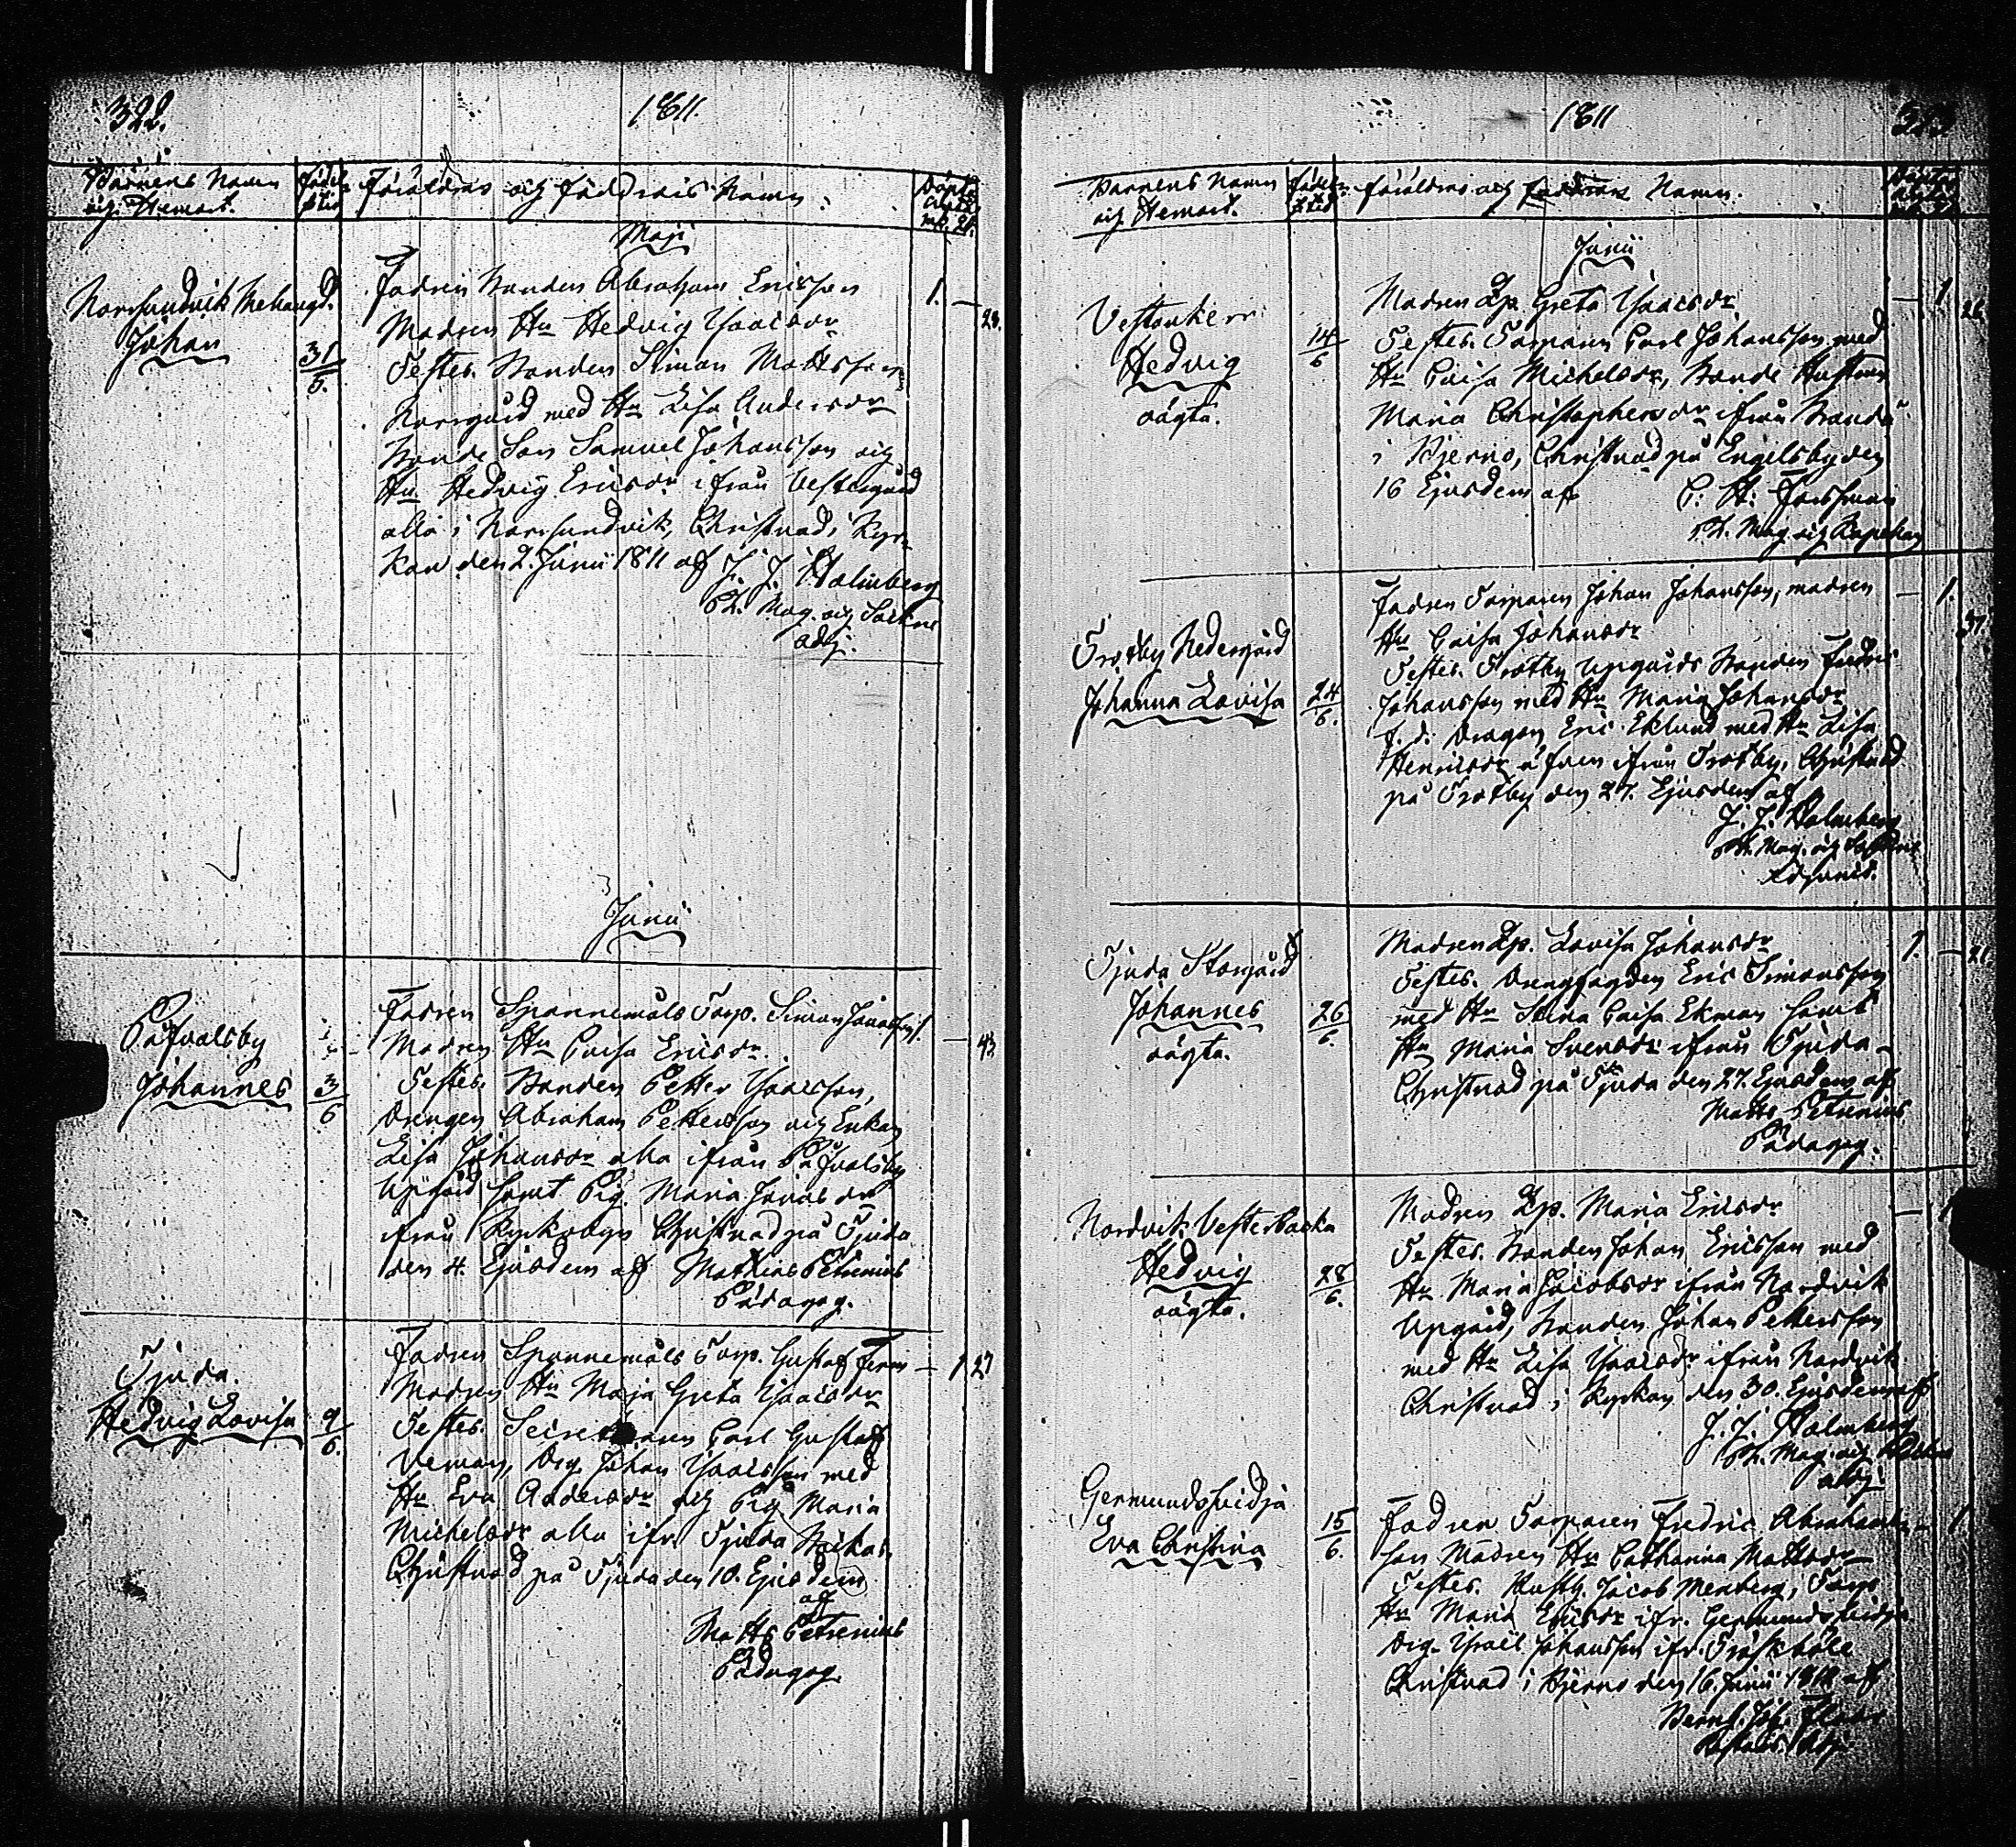 322.
1811.
Barnens Namn
och Hemort.
Födelse
tid
Föräldras och faddrars Namn.
Maji
Norrsundvik Mehangd.
Johan
31
5.
Fadren Bonden Abraham Ericsson
Modren Hu Hedvig Isacsdr
Testes. Bonden Simon Mattsson
Norrgård med Hu Lisa Andersdr
Bonde Son Samuel Johansson och
Hu Hedvig Ericsdr ifrån Vestergård
alla i Norrsundvik, Christnad i Kyr-
kan den 2. Junii 1811 af J. J. Holmberg
Ph. Mag. och Sockne
adj.
1. —
28.
Junii
Påfvalsby
Johannes
3
6
Fadren Spannemåls Torp. Simon Jonasson
Modren Hu Caisa Ericsdr
Testes. Bonden Petter Isacsson,
Drengen Abraham Pettersson och Enkan
Lisa Johansdr alla ifrån Påfvalsby
Uppgård samt Pig. Maria Jonasdr
ifrån Kyrkobyn Christnad på Tjuda
den 4. Ejusdem af Mathias Petrenius
Pädagog.
— 43
Tjuda.
Hedvig Lovisa
9
6.
Fadren Spannemåls Torp. Gustaf
Modren Hu Maja Greta Isacsdr
Testes. Carl Gustaf
Veman, Drg. Johan Isacsson med
Hu Eva Andersdr och Pig. Maria
Michelsdr alla ifr. Tjuda Backa.
Christnad på Tjuda den 10. Ejusdem
af
Matts Petrenius
Pädagog.
— 1 27
1811
323
Barnens Namn
och Hemort.
Födelse
tid
Föräldras och faddrars Namn.
Junii
Vestankerr
Hedvig
oägta.
14
6
Modren Lp. Greta Isacsdr
Testes. Torparen Carl Johansson med
Hu Caisa Michelsdr, Bonde Hustrun
Maria Christophersdr ifrån
i Bjerno, Christnad på Engelsby den
16 Ejusdem af C. H. Forssman
Ph. Mag och Kapellan
— 1
26
Trotby Nedergård
Johanna Lovisa
24
6.
Fadren Torparen Johan Johansson, modren
Hu Caisa Johansdr
Testes. Trotby Uppgårds Bonden Fredric
Johansson med Hu Maria Johansdr
f. d. Dragon Eric Eklund med Hu Lisa
Henricsdr äfven ifrån Trotby, Christnad
på Trotby den 27. Ejusdem af
J. J. Holmberg
Ph. Mag. och Sockne
Adjunct.
— 1.
37
Tjuda Storgård
Johannes
oägta.
26
6.
Modren Lp. Lovisa Johansdr
Testes. Drengfogden Eric Simonsson
med Hu Stina Caisa Ekman samt
Hu Maria Svensdr ifrån Tjuda.
Christnad på Tjuda den 27. Ejusdem af
Matts Petrenius
Pädagog.
1. — 21
Nordvik Vesterbacka
Hedvig
oägta.
28
6.
Modren Lp. Maria Ericsdr
Testes. Bonden Johan Ericsson med
Hu Maria Jacobsdr ifrån Nordvik
Uppgård, Bonden Johan Pettersson
med Hu Lisa Isacsdr ifrån Nordvik
Christnad i Kyrkan den 30. Ejusdem af
J. J. Holmberg
Ph. Mag. och
adj.
— 1
Germundssvidja
Eva Christina
15
6.
Fadren Torparen Fredric Abrahams-
son Modren Hu Catharina Mattsdr
Testes. Rusth. Jacob Menberg, Torp
Hu Maria Ericsdr ifr. Germundssvidja
Drg. Israel Johansson ifr. Träskböle
Christnad i Bjerno den 16. Junii 1811 af
Bernd. Joh.
1